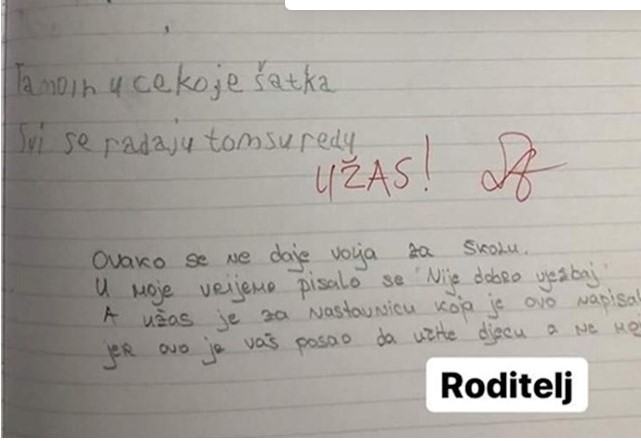 Tamoih u cekoje šatka
Svi se radaju tomsuredu
UŽAS!
Ovako se ne daje volja za školu.
U moje vrijeme pisalo se "Nije dobro vježbaj"
A užas je za nastavnicu koja je ovo napisal
jer ovo je vaš posao da učite djecu a ne
Roditelj